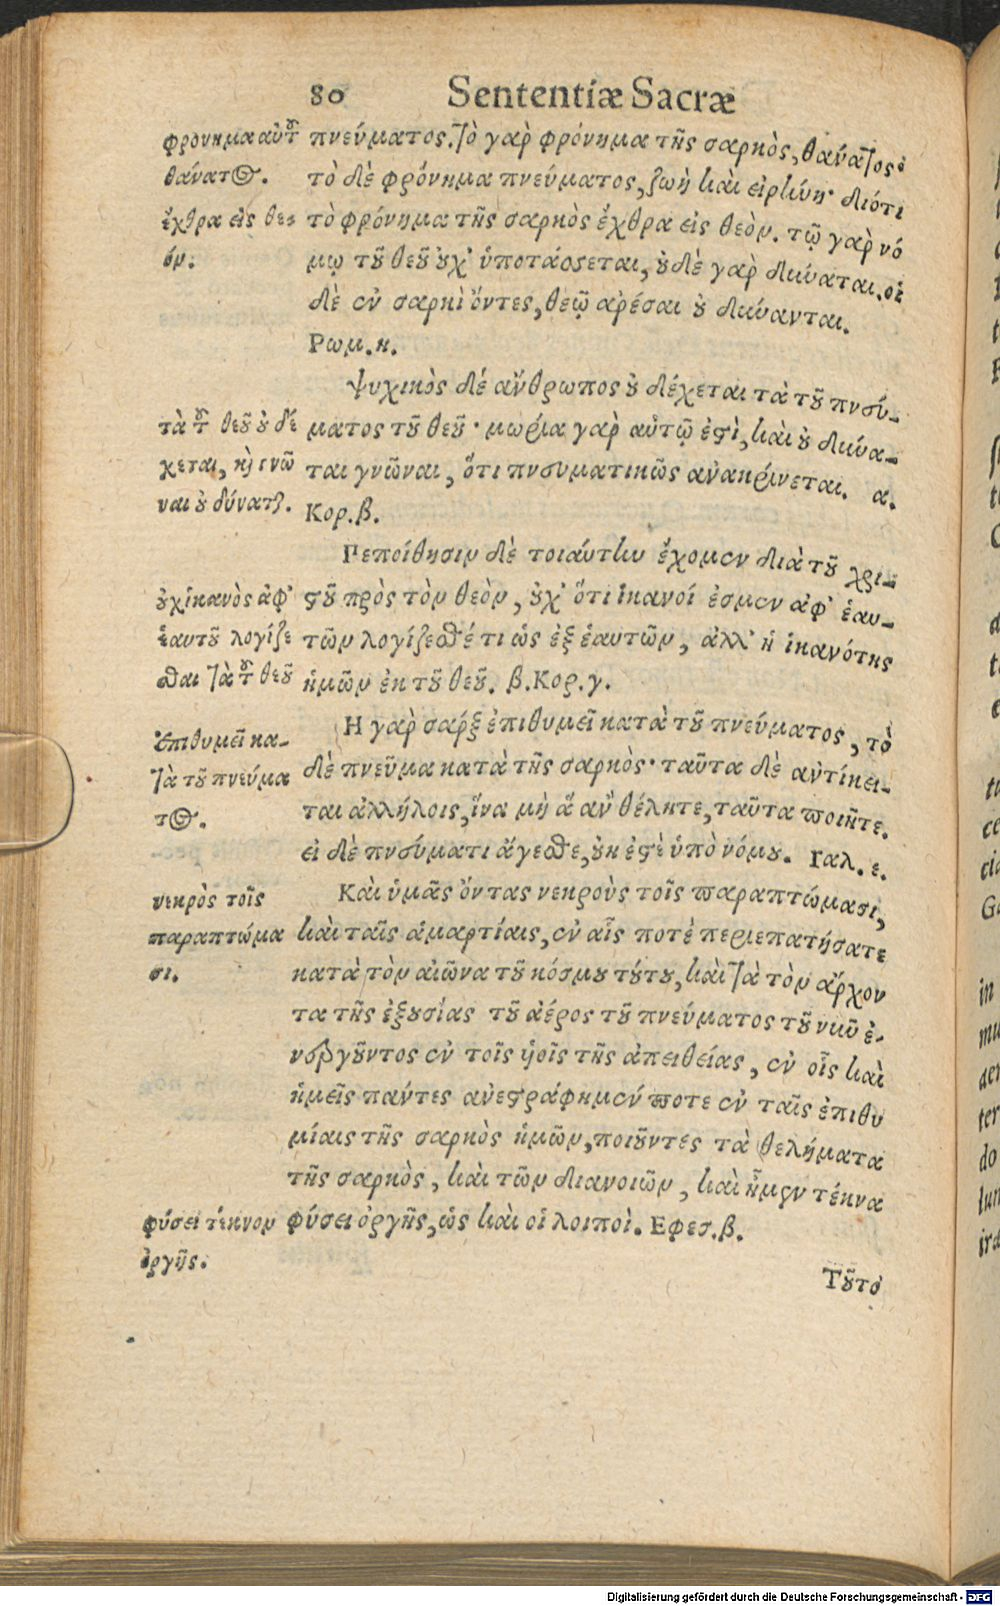 80 Sententiæ Sacræ
φρόνημα αὐτ͂ȣ
θάνατος.
ἔχθρα εἰς θε-
όν.
πνεύματος. Τὸ γὰρ φρόνημα τῆς σαρκὸς, θάνατος·
τὸ δὲ φρόνημα πνεύματος, ζωὴ καὶ εἰρήνη· διότι
τὸ φρόνημα τῆς σαρκὸς ἔχθρα εἰς θεὸν. τῷ γὰρ νό
μῳ τȣ͂ θεȣ͂ ȣ̓χ' ὑποτάσσεται, ȣ̓δὲ γὰρ δύναται. οἱ
δὲ ἐν σαρκὶ ὄντες, θεῷ ἀρέσαι ȣ̓ δύνανται.
Ρωμ. η.
τὰ τȣ͂ θεȣ͂ ȣ̓ δέ
χεται, κỳ γνῶ
ναι ȣ̓ δύναται.
ψυχικὸς δέ ἄνθρωπος ȣ̓ δέχεται τὰ τȣ͂ πνεύ-
ματος τȣ͂ θεȣ͂· μωρία γαρ αὐτῷ ἐστὶ, καὶ ȣ̓ δύνα-
ται γνῶναι, ὅτι πνευματικῶς ἀνακρίνεται. α.
Κορ. β.
ȣ̓χ ἱκανὸς ἀφ'
ἑαυτȣ͂ λογίζε
σθαι τὰ τȣ͂ θεȣ͂
Πεποίθησιν δὲ τοιαύτην ἔχομεν διὰ τȣ͂ χρι-
στȣ͂ πρὸς τὸν θεὸν, ȣ̓χ' ὅτι ἱκανοί ἐσμεν ἀφ' ἑαυ-
τῶν λογίζεσθέ τι ὡς ἐξ ἑαυτῶν, ἀλλ' ἡ ἱκανότης
ἡμῶν ἐκ τȣ͂ θεȣ͂. β. Κορ. γ.
Ἐπιθυμεῖ κα-
τὰ τȣ͂ πνεύμα
τος.
Η γαρ σαρξ ἐπιθυμεῖ κατὰ τȣ͂ πνεύματος, τὸ
δὲ πνεῦμα κατὰ τῆς σαρκὸς· ταῦτα δὲ ἀντίκει-
ται ἀλλήλοις, ἵνα μὴ ἃ ἂν θέλητε, ταῦτα ποιῆτε.
εἰ δὲ πνεύματι ἄγεσθε, ȣ̓κ ἐστὲ ὑπὸ νόμȣ. Γαλ. ε.
νεκρὸς τοῖς
παραπτώμα
σι.
Καὶ ὑμᾶς ὄντας νεκροὺς τοῖς παραπτώμασι,
καὶ ταῖς ἁμαρτίαις, ἐν αἷς ποτὲ περιεπατήσατε
κατὰ τὸν αἰῶνα τȣ͂ κόσμȣ τύτȣ, καὶ τὰ τὸν ἄρχον
τα τῆς ἐξȣσίας τȣ͂ ἀέρος τȣ͂ πνεύματος τȣ͂ νῦν ἐ-
νεργȣ͂ντος ἐν τοῖς ὑοῖς τῆς ἀπειθείας, ἐν οἷς καὶ
ἡμεῖς πάντες ἀνεστράφημεν ποτε ἐν ταῖς ἐπιθυ
μίαις τῆς σαρκὸς ἡμῶν, ποιȣ͂ντες τὰ θελήματα
τῆς σαρκὸς, καὶ τῶν διανοιῶν, καὶ ἦμεν τέκνα
φύσει ὀργῆς, ὡς καὶ οἱ λοιποὶ. Εφεσ. β.
φύσει τέκνον
ὀργῆς.
Τȣ͂το
Digitalisierung gefördert durch die Deutsche Forschungsgemeinschaft - DFG